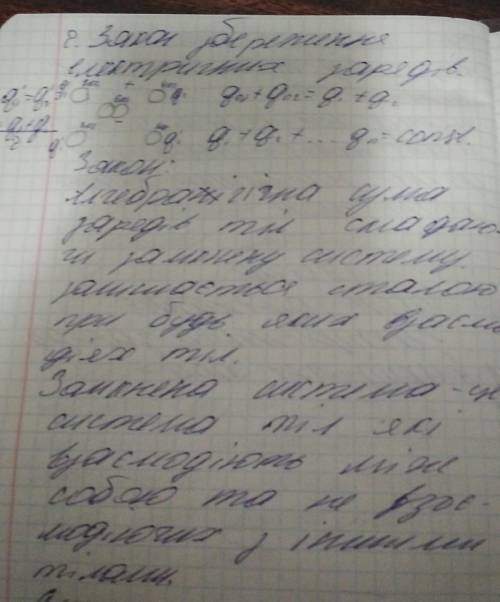 2. Закон збереження
електричних зарядів.
q₀₁ + q₀₂ = q₁ + q₂
q₁ + q₂ + ... qₙ = const.
Закон:
Алгебраїчна сума
зарядів тіл складаю-
чи замкнену систему
залишається сталою
при будь яких взаємо
діях тіл.
Замкнена система - це
система тіл які
взаємодіють між
собою та не взає-
модіючих з іншими
тілами.